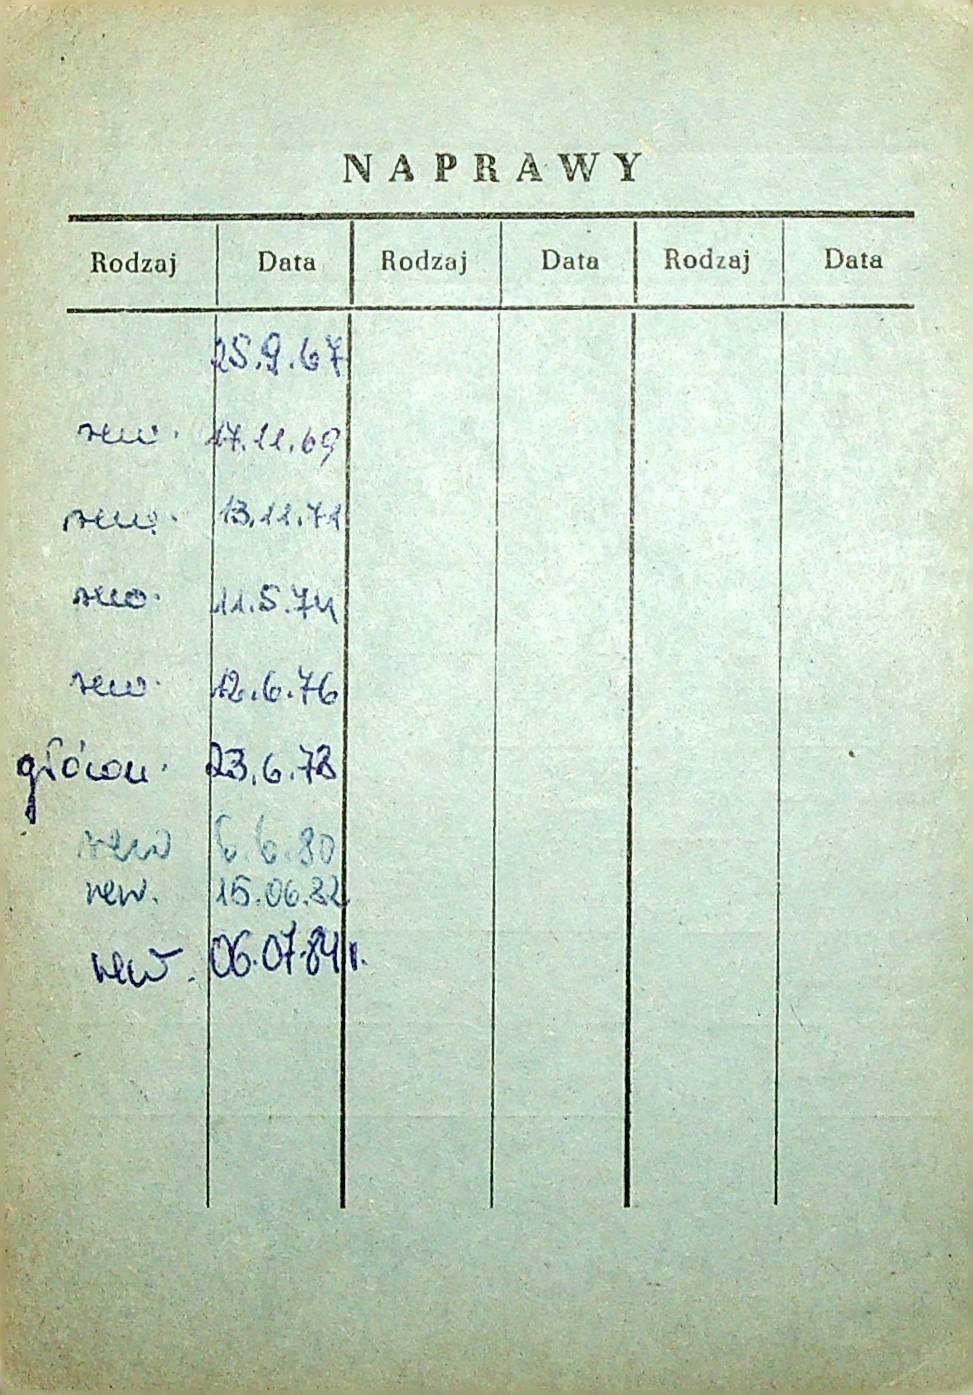 NAPRAWY
Rodzaj Data Rodzaj Data Rodzaj Data
25.9.67
rew. 17.11.69
rew. 13.11.71
rew. 11.5.74
rew. 12.6.76
główn. 23.6.78
rew 6.6.80
rew. 15.06.82
rew. 06.07.84 r.